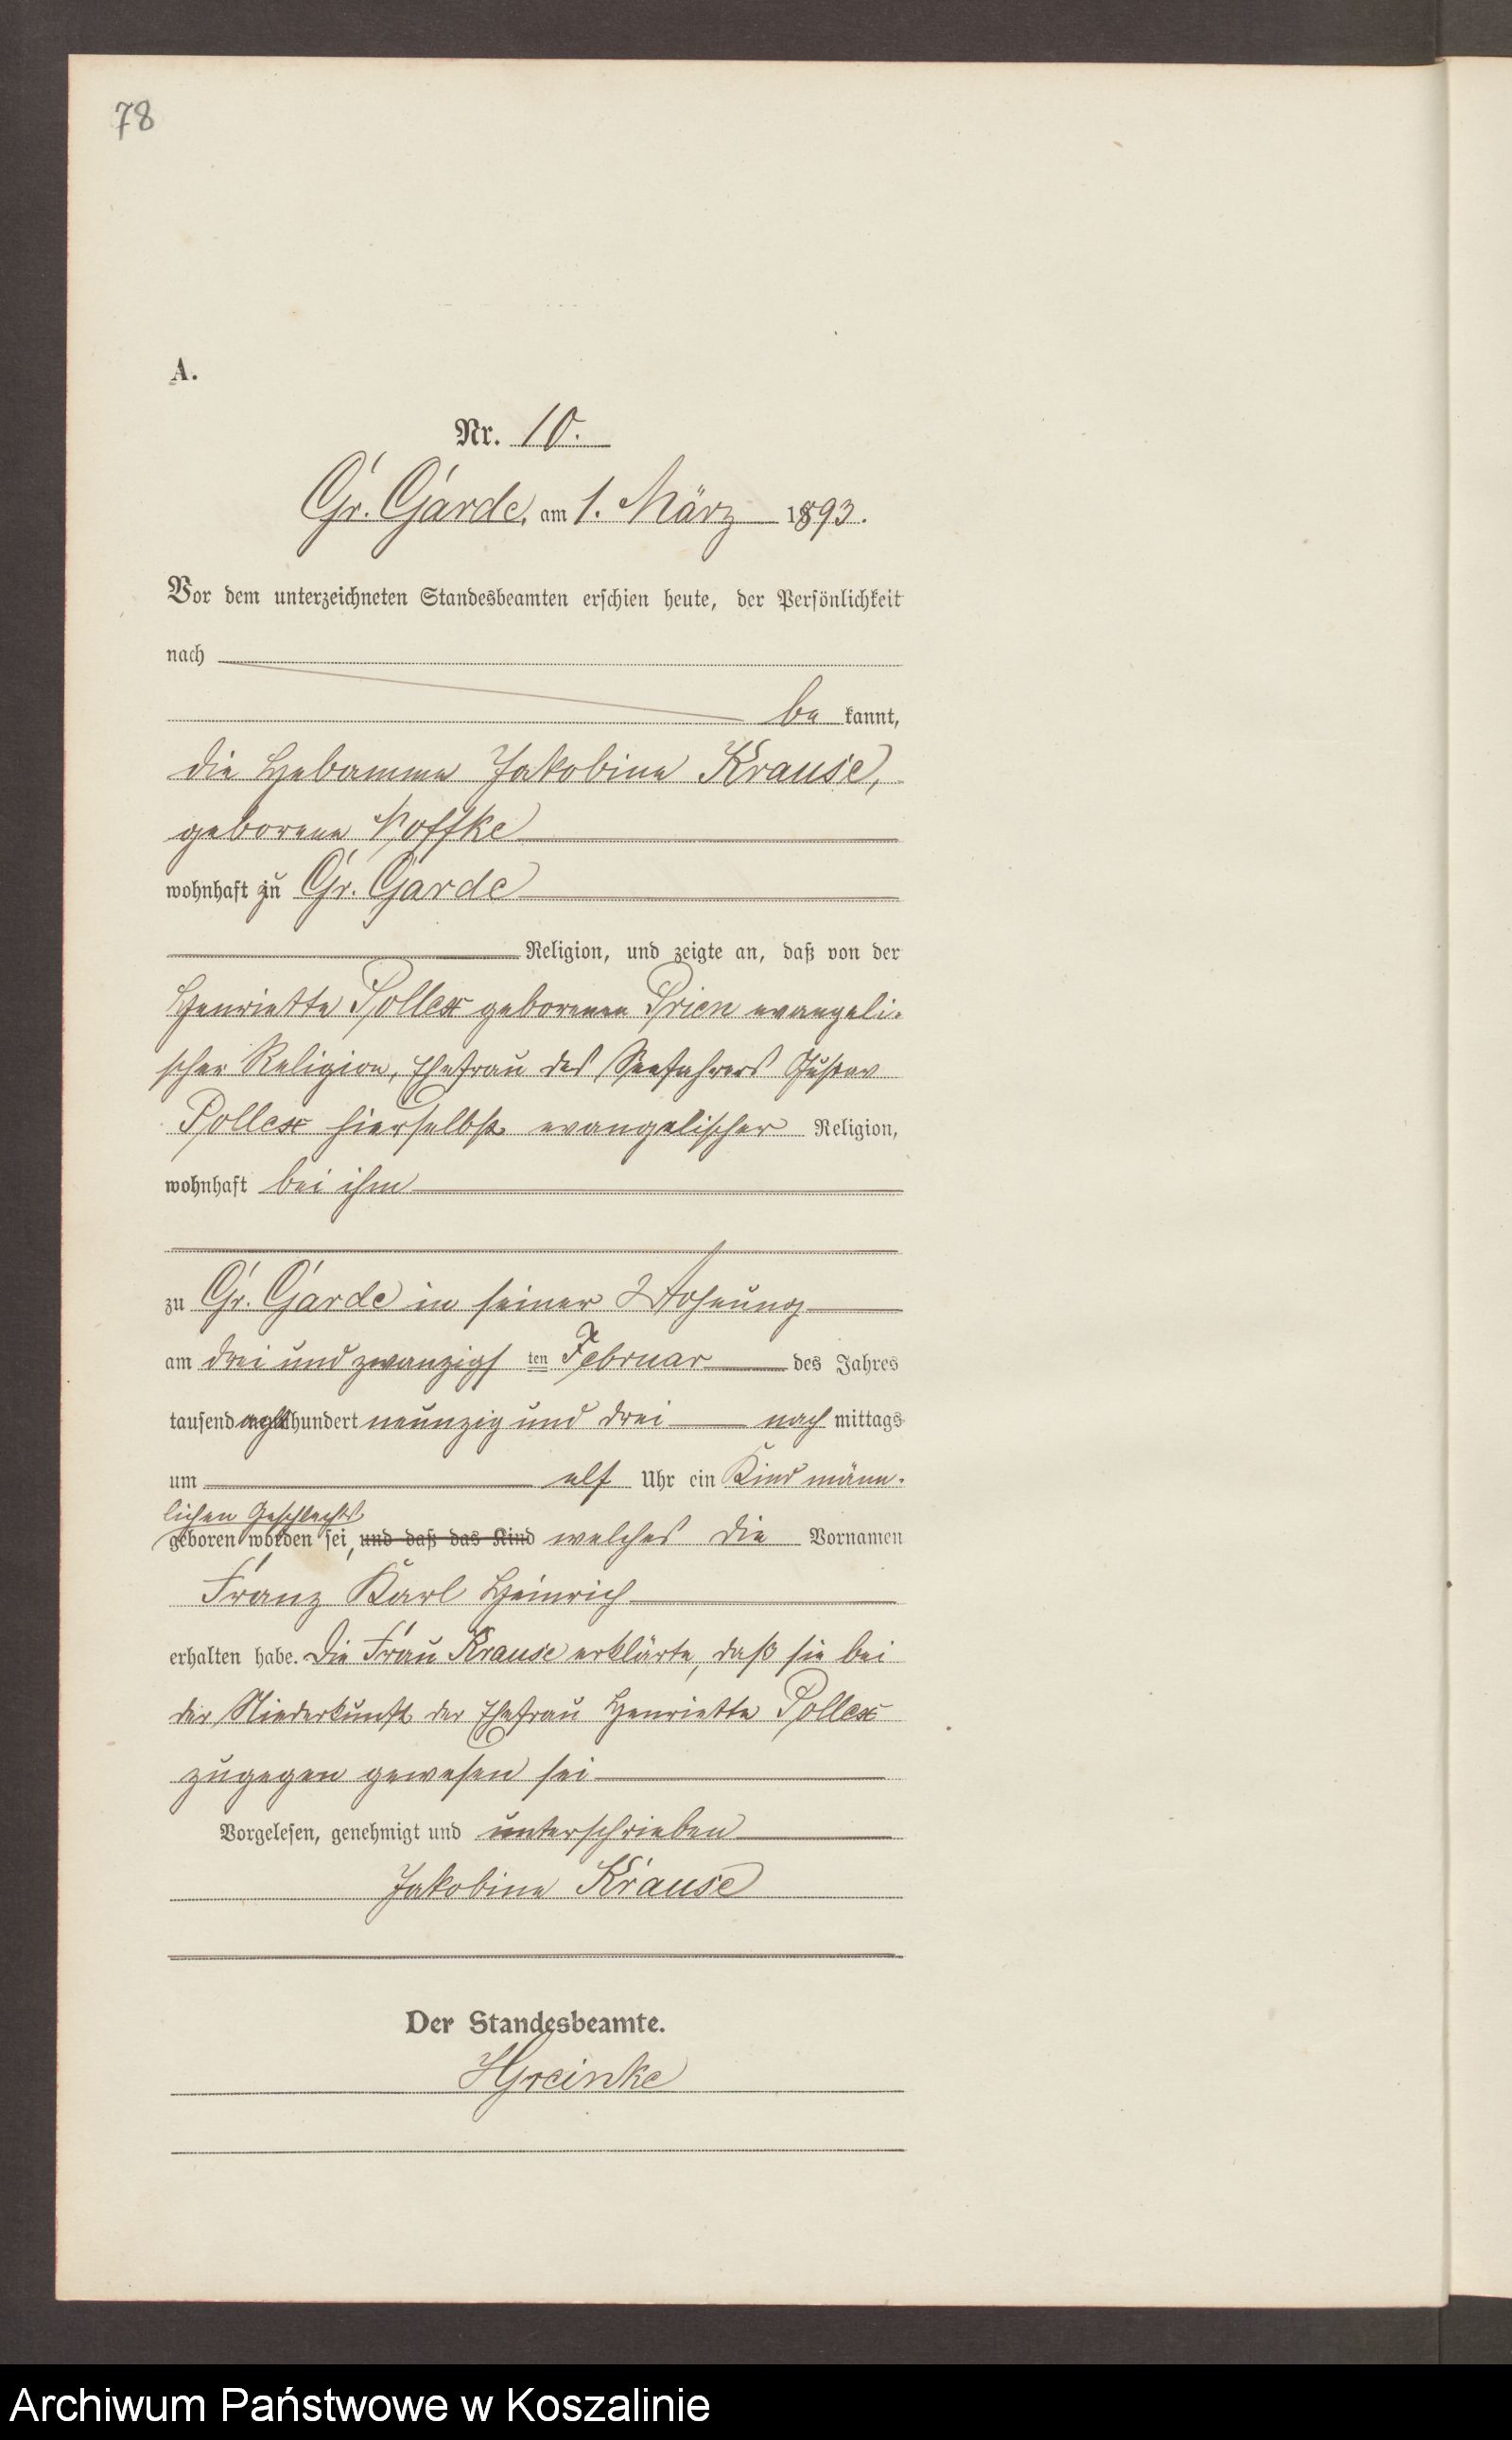 78
A.
Nr. 10.
Gr. Garde, am 1. März 1893.
Vor dem unterzeichneten Standesbeamten erschien heute, der Persönlichkeit
nach
be kannt,
die Hebamme Jakobine Krause,
geborene Koffke
wohnhaft zu Gr. Garde
Religion, und zeigte an, daß von der
Henriette Pollex geborenen Prien evangeli-
scher Religion, Ehefrau des Seefahrers Gustav
Pollex hierselbst evangelischer Religion,
wohnhaft bei ihm
zu Gr. Garde in seiner Wohnung
am drei und zwanzigs ten Februar des Jahres
tausend acht hundert neunzig und drei nach mittags
um elf Uhr ein Kind männ-
lichen Geschlechts
geboren worden sei, und daß das Kind welches die Vornamen
Franz Karl Heinrich
erhalten habe. Die Frau Krause erklärte, daß sie bei
der Niederkunft der Ehefrau Henriette Pollex
zugegen gewesen sei
Vorgelesen, genehmigt und unterschrieben
Jakobine Krause
Der Standesbeamte.
Archiwum Państwowe w Koszalinie